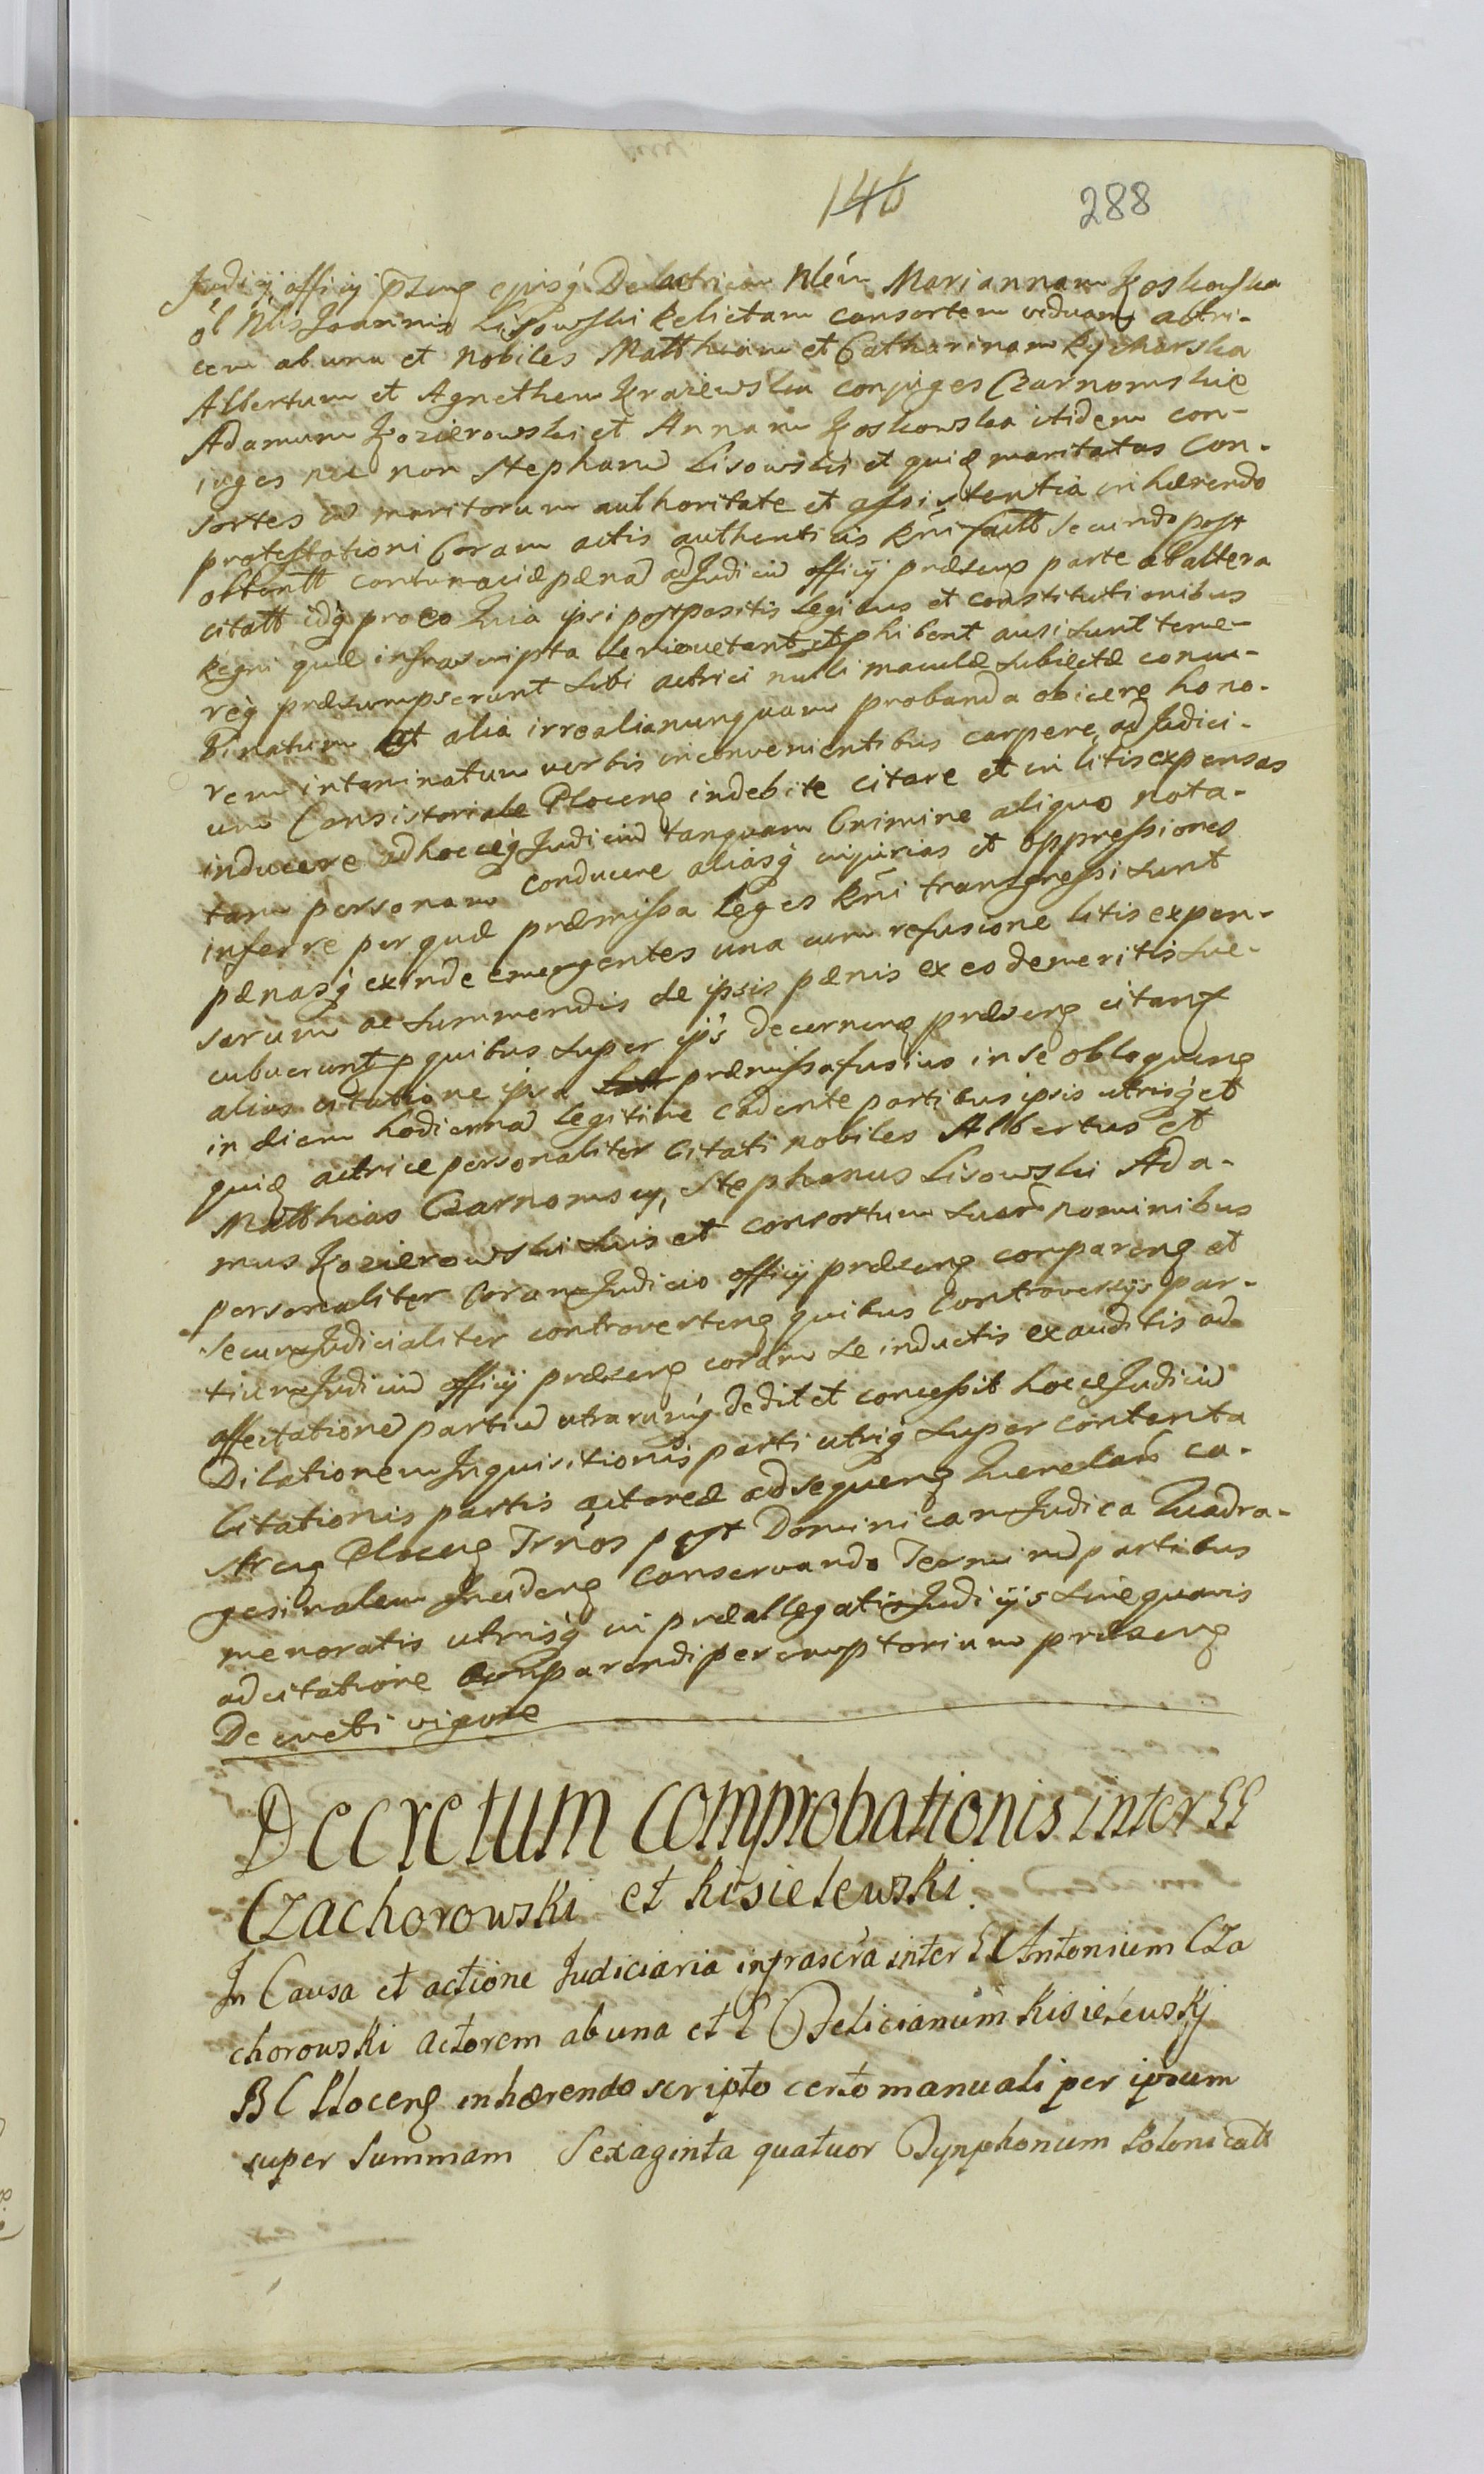 146 288
Judicij officij pzens ejusq Delatricem Nlem Mariannam Koskowska
ol Nlis Joannis Lisowski Relictam consortem viduam actri-
cem ab una et Nobiles Matthiam et Catharinam Rycharska
Albertum et Agnethem Krajewska conjuges Czarnomskie
Adamum Kozierowski et Annam Koskowska itidem con-
juges nec non Stephanu Lisowski et quidem maritatas con-
sortes in maritorum authoritate et assistentia inhærendo
protestationi Coram actis authenticis Rni factt secundo post
obtentt contumaciæ pæna ad Judiciu officij præsens parte ab altera
citatt idq pro eo Quia ipsi postpositis legibus et constitutionibus
Regni quæ infrascripta serio vetant et phibent ausi sunt teme-
req præsumpserunt Sibi actrici nulli maculæ subiectæ
binatum et alia irrealia nunquam probanda obicere hono-
rem intaminatum verbis inconvenientibus carpere, ad Judici-
um Consistoriale Plocens indebite citare et in litis expensas
inducere ad hocceq Judiciu tanquam Crimine aliquo nota-
tam personam conducere aliasq injurias et oppressiones
inferre per quæ præmissa leges Rni transgressi sunt
pænasq exinde emergentes una cum refusione litis expen-
sarum ac summendis de ipsis pænis ex eo demeritis suc-
cubuerunt p quibus super ijs decernens præsens citant
alias citatione ipsa præmissa fusius in se obloquens
in diem hodierna legitime cadente partibus ipsis utrisq et
quidem actrice personaliter Citati nobiles Albertus et
Matthias Czarnomscy, Stephanus Lisowski Ada-
mus Kozierowski suis et consortum suar nominibus
personaliter Coram Judicio officij præsens comparens et
secum Judicialiter controvertens quibus Controversijs par-
tium Judiciu officij præsens coram se inductis exauditis ad
affectatione partiu utrarumq dedit et concessit hocce Judiciu
Dilationem Inquisitionis parti utriq super contenta
Citationis partis actoreæ ad sequens Querelar ca-
strens Plocens Trnos post Dominicam Judica Quadra-
gesimalem Incidens conservando Terminu partibus
memoratis utrisq in præallegatis Judicijs sine quavis
adcitatione comparendi peremptorium præsens
Decreti vigore
Decretum Comprobationis inter EE
Czachorowski et Kisielewski.
In Causa et actione Judiciaria infrascra inter EE Antonium Cza
chorowski actorem ab una et E Felicianum Kisielewskj
B C Plocens inhærendo scripto certo manuali per ipsum
super summam Sexaginta quatuor Tynphonum Polonicatt